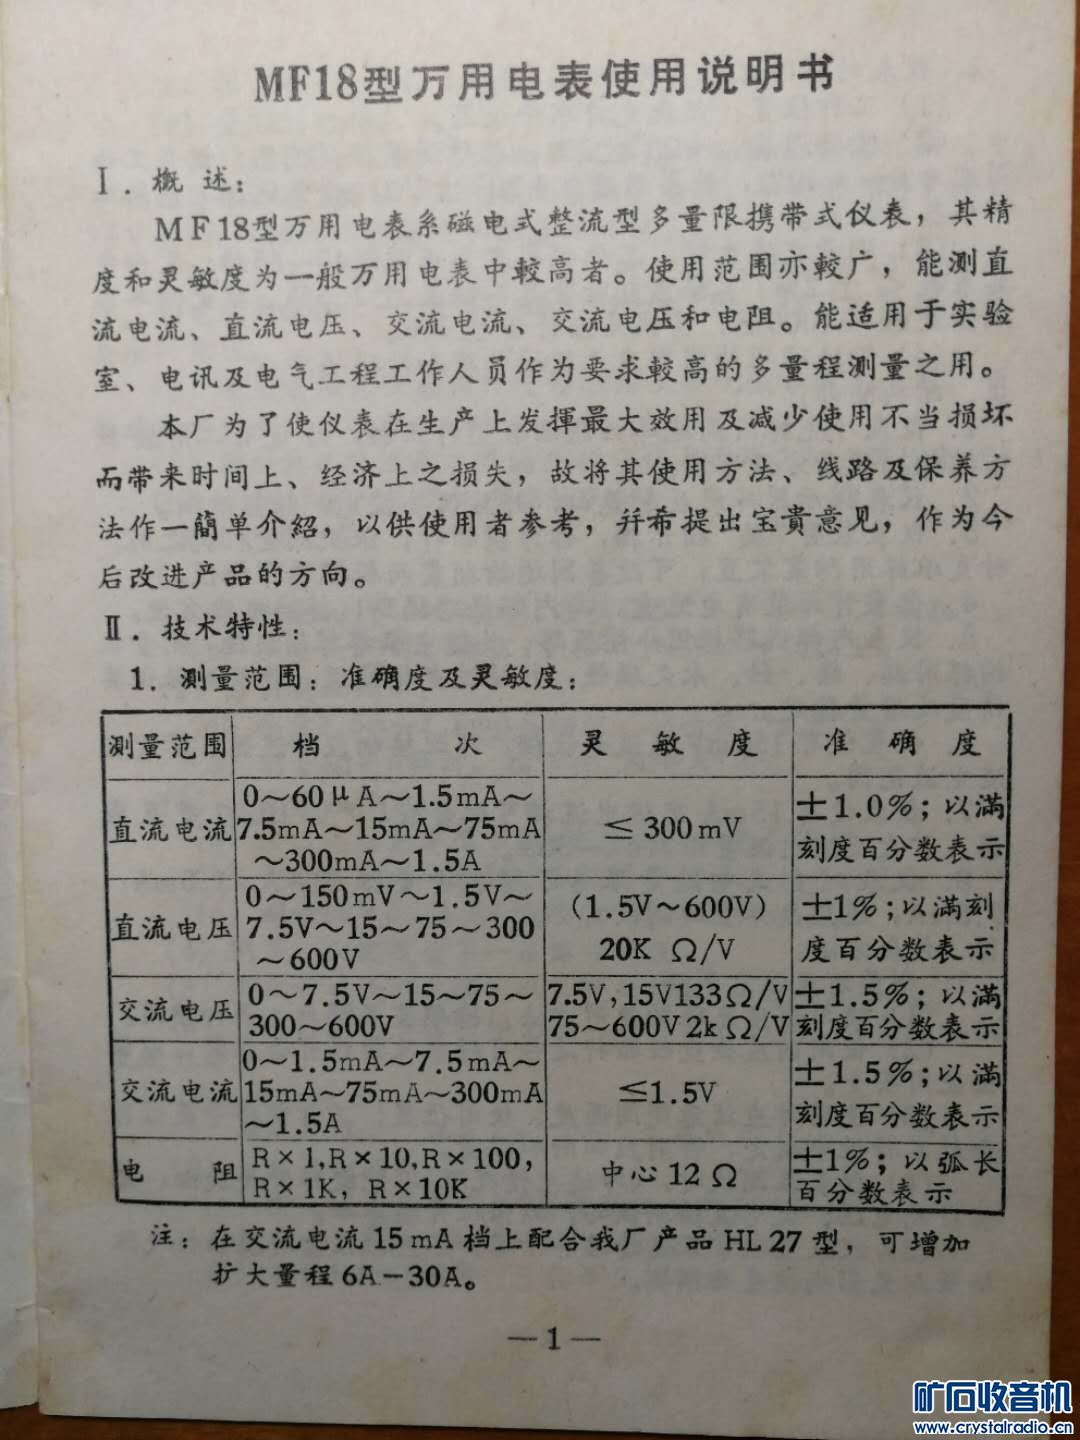 MF18型万用电表使用说明书
Ⅰ. 概 述：
MF18型万用电表系磁电式整流型多量限携带式仪表，其精
度和灵敏度为一般万用电表中較高者。使用范围亦較广，能测直
流电流、直流电压、交流电流、交流电压和电阻。能适用于实验
室、电讯及电气工程工作人员作为要求較高的多量程测量之用。
本厂为了使仪表在生产上发揮最大效用及减少使用不当损坏
而带来时间上、经济上之损失，故将其使用方法、线路及保养方
法作一簡单介紹，以供使用者参考，幷希提出宝貴意见，作为今
后改进产品的方向。
Ⅱ. 技术特性：
1. 測量范围：准确度及灵敏度：
測量范围 档 次 灵 敏 度 准 确 度
直流电流
0～60μA～1.5mA～
7.5mA～15mA～75mA
～300mA～1.5A
≤ 300mV
±1.0%；以滿
刻度百分数表示
直流电压
0～150mV～1.5V～
7.5V～15～75～300
～600V
(1.5V～600V)
20K Ω/V
±1%；以滿刻
度百分数表示
交流电压
0～7.5V～15～75～
300～600V
7.5V,15V133Ω/V
75～600V 2kΩ/V
±1.5%；以滿
刻度百分数表示
交流电流
0～1.5mA～7.5mA～
15mA～75mA～300mA
～1.5A
≤1.5V
±1.5%；以滿
刻度百分数表示
电 阻
R×1,R×10,R×100,
R×1K, R×10K
中心12Ω
±1%；以弧长
百分数表示
注：在交流电流15mA档上配合我厂产品HL27型，可增加
扩大量程6A—30A。
—1—
矿石收音机
www.crystalradio.cn